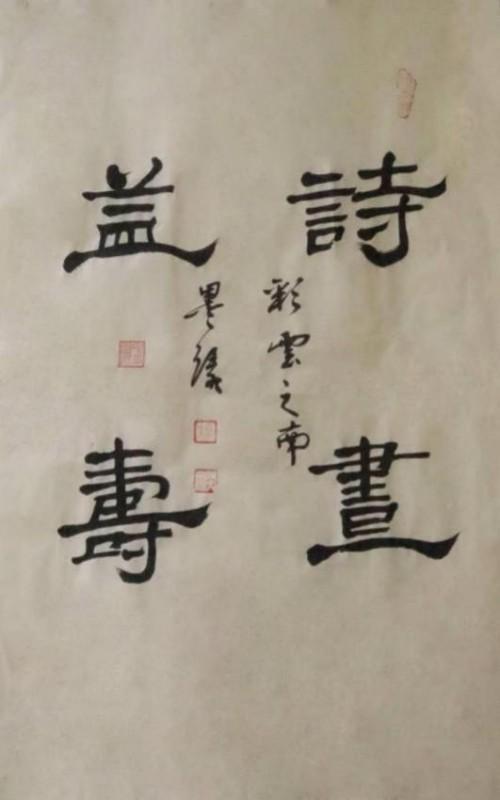 詩晝
益壽
彩雲之南
墨